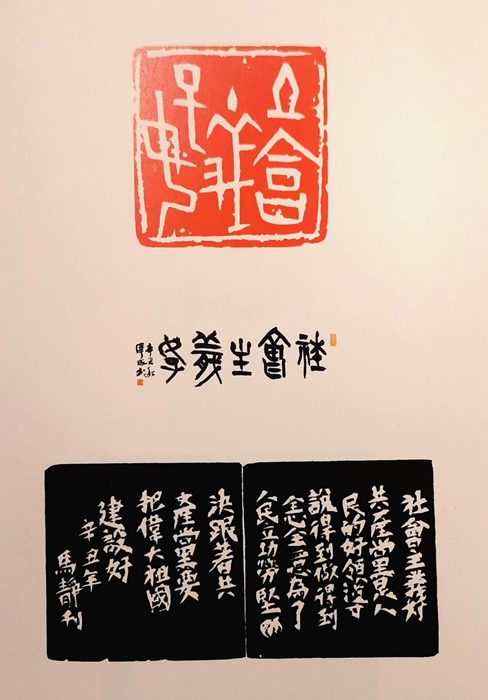 社會主義好
社會主義好
社會主義好
共產黨是人
民的好領導
說得到做得到
全心全意為了
人民立功勞堅
決跟著共
產黨要
把偉大祖國
建設好
辛丑年
馬靜利